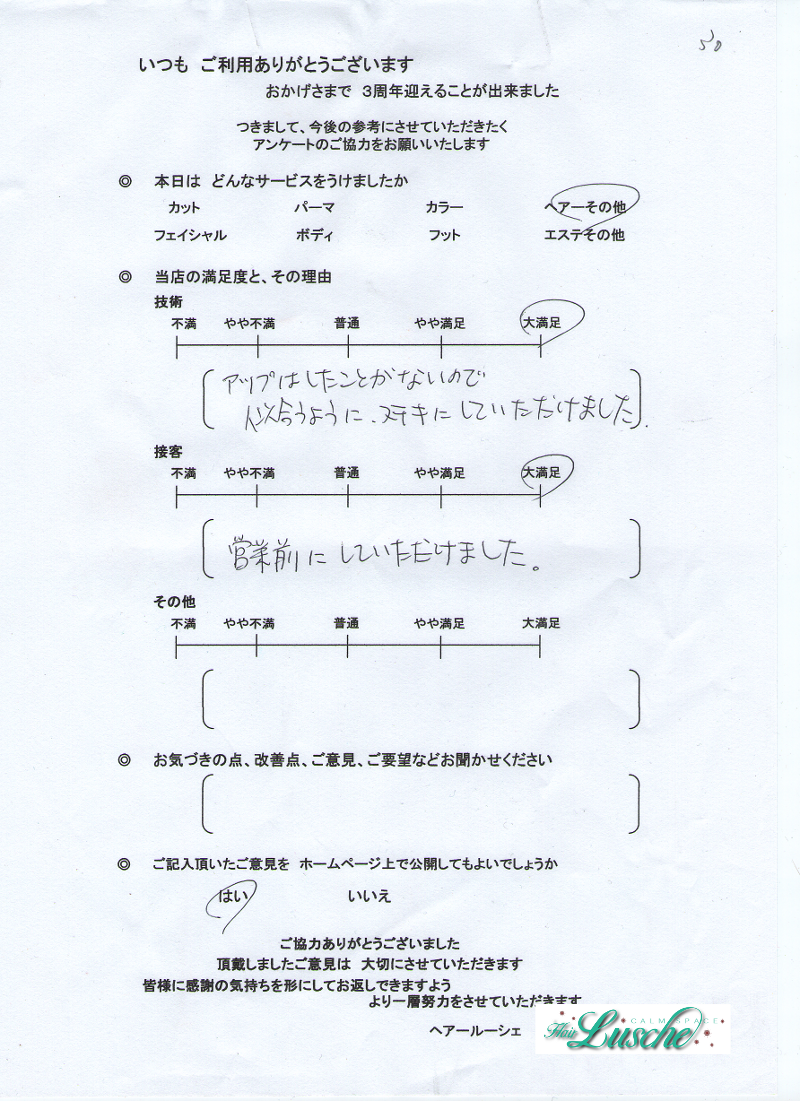 50
いつも ご利用ありがとうございます
おかげさまで 3周年迎えることが出来ました
つきまして、今後の参考にさせていただきたく
アンケートのご協力をお願いいたします
◎ 本日は どんなサービスをうけましたか
カット パーマ カラー ヘアーその他
フェイシャル ボディ フット エステその他
◎ 当店の満足度と、その理由
技術
不満 やや不満 普通 やや満足 大満足
アップはしたことがないので
似合うように、ステキにしていただけました.
接客
不満 やや不満 普通 やや満足 大満足
営業前にしていただけました。
その他
不満 やや不満 普通 やや満足 大満足
◎ お気づきの点、改善点、ご意見、ご要望などお聞かせください
◎ ご記入頂いたご意見を ホームページ上で公開してもよいでしょうか
はい いいえ
ご協力ありがとうございました
頂戴しましたご意見は 大切にさせていただきます
皆様に感謝の気持ちを形にしてお返しできますよう
より一層努力をさせていただきます
ヘアールーシェ
CALM SPACE
Hair Lusche